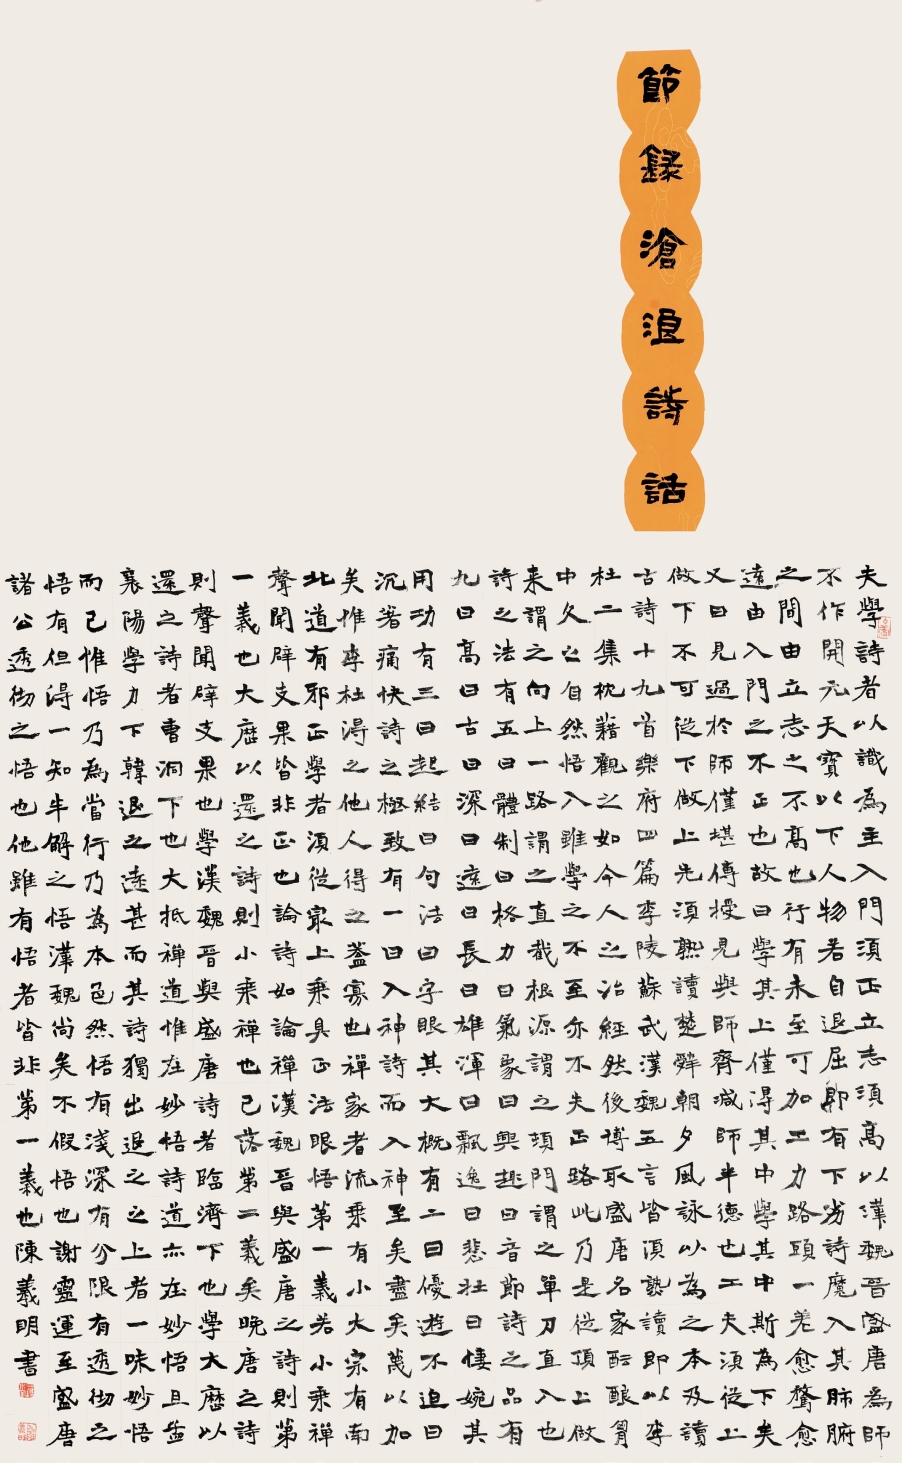 節録滄浪詩話
夫學詩者以識為主入門須正立志須高以漢魏晉盛唐為師
不作開元天寶以下人物若自退屈即有下劣詩魔入其肺腑
之間由立志之不高也行有未至可加工力路頭一差愈騖愈
遠由入門之不正也故曰學其上僅得其中學其中斯為下矣
又曰見過於師僅堪傳授見與師齊減師半德也工夫須從上
做下不可從下做上先須熟讀楚辭朝夕風詠以為之本及讀
古詩十九首樂府四篇李陵蘇武漢魏五言皆須熟讀即以李
杜二集枕藉觀之如今人之治經然後博取盛唐名家醖釀胷
中久之自然悟入雖學之不至亦不失正路此乃是從頂上做
来謂之向上一路謂之直截根源謂之頓門謂之單刀直入也
詩之法有五曰體制曰格力曰氣象曰興趣曰音節詩之品有
九曰高曰古曰深曰遠曰長曰雄渾曰飄逸曰悲壯曰悽婉其
用功有三曰起結曰句法曰字眼其大概有二曰優遊不迫曰
沉著痛快詩之極致有一曰入神詩而入神至矣盡矣蔑以加
矣惟李杜得之他人得之蓋寡也禪家者流乘有小大宗有南
北道有邪正學者須從最上乘具正法眼悟第一義若小乘禪
聲聞辟支果皆非正也論詩如論禪漢魏晉與盛唐之詩則第
一義也大歷以還之詩則小乘禪也已落第二義矣晚唐之詩
則聲聞辟支果也學漢魏晉與盛唐詩者臨濟下也學大歷以
還之詩者曹洞下也大抵禪道惟在妙悟詩道亦在妙悟且孟
襄陽學力下韓退之遠甚而其詩獨出退之之上者一味妙悟
而已惟悟乃為當行乃為本色然悟有淺深有分限有透彻之
悟有但得一知半解之悟漢魏尚矣不假悟也謝靈運至盛唐
諸公透彻之悟也他雖有悟者皆非第一義也陳義明書